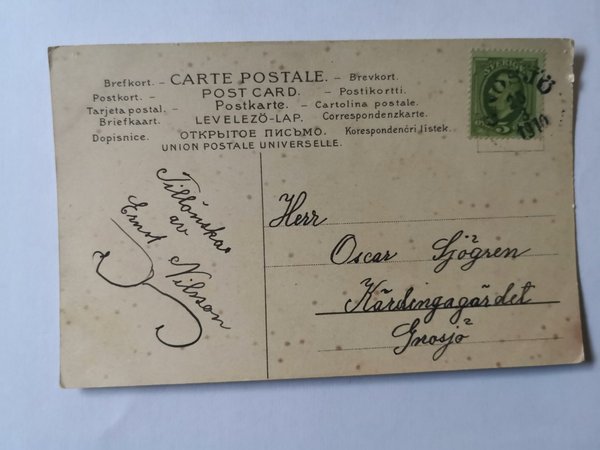 Brefkort. – CARTE POSTALE. – Brevkort.
Postkort. – POST CARD. – Postikortti.
Tarjeta postal. – Postkarte. – Cartolina postale.
Briefkaart. LEVELEZÖ-LAP. Correspondenzkarte.
Dopisnice. ОТКРЫТОЕ ПИСЬМО. Korespondenční lístek.
UNION POSTALE UNIVERSELLE.
SVERIGE
5
GNOSJÖ
1910
Tillönskas
av
Ernst Nilsson
Herr
Oscar Sjögren
Kärdingagärdet
Gnosjö